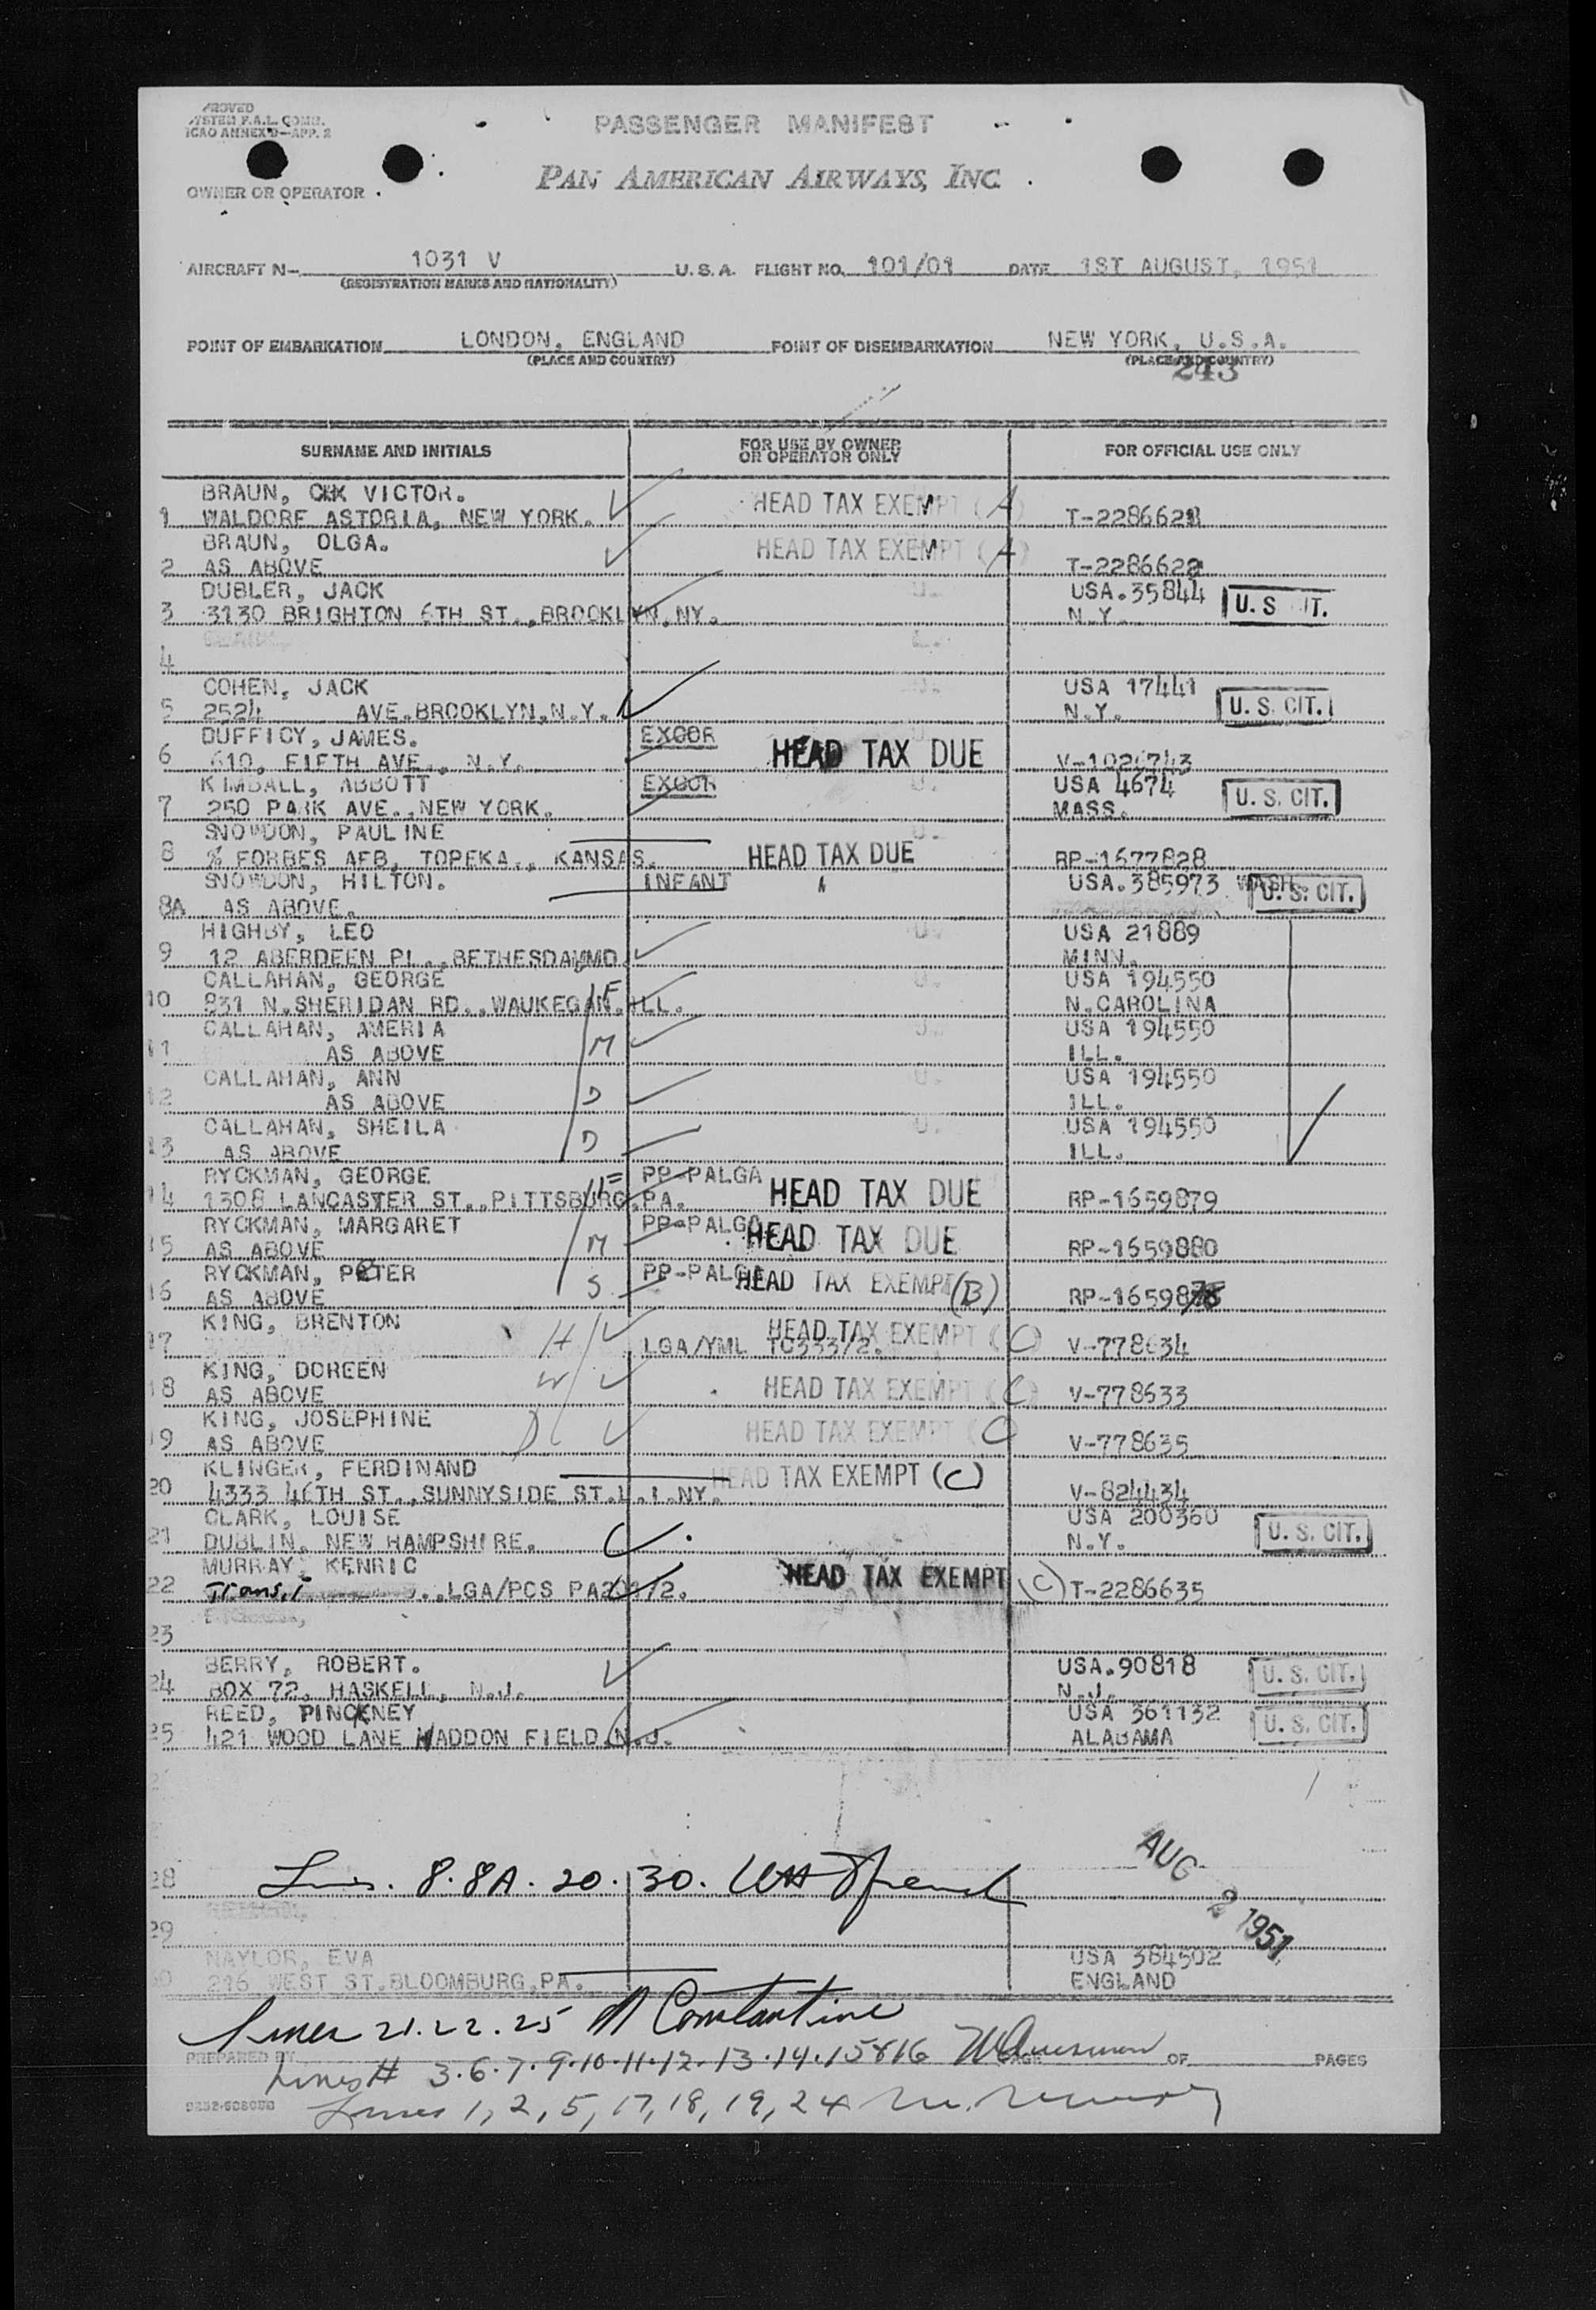 PASSENGER MANIFEST
SYSTEM F.A.L. COMM.
ICAO ANNEX 9-APP. 2
PAN AMERICAN AIRWAYS, INC.
OWNER OR OPERATOR
AIRCRAFT N- 1031 V U.S.A. FLIGHT NO. 101/01 DATE 1ST AUGUST, 1951
(REGISTRATION MARKS AND NATIONALITY)
POINT OF EMBARKATION LONDON, ENGLAND POINT OF DISEMBARKATION NEW YORK, U.S.A.
(PLACE AND COUNTRY) (PLACE AND COUNTRY)
243
SURNAME AND INITIALS FOR USE BY OWNER OR OPERATOR ONLY FOR OFFICIAL USE ONLY
BRAUN, VICTOR. HEAD TAX EXEMPT (A)
1 WALDORF ASTORIA, NEW YORK. T-2286621
BRAUN, OLGA. HEAD TAX EXEMPT (A)
2 AS ABOVE T-2286622
DUBLER, JACK USA.35844 U.S. CIT.
3 3130 BRIGHTON 6TH ST.,BROOKLYN,NY. N.Y.
4
COHEN, JACK USA 17441
5 2524 AVE.BROOKLYN,N.Y. N.Y. U.S. CIT.
DUFFICY, JAMES. EXCOR HEAD TAX DUE
6 610, FIFTH AVE., N.Y.
KIMBALL, ABBOTT EXCOR USA 4674
7 250 PARK AVE.,NEW YORK. MASS. U.S. CIT.
SNOWDON, PAULINE
8 % FORBES AFB, TOPEKA., KANSAS. HEAD TAX DUE RP-1677828
SNOWDON, HILTON. INFANT USA.385973 WASH. U.S. CIT.
8A AS ABOVE.
HIGHBY, LEO USA 21889
9 12 ABERDEEN PL.,BETHESDA MD. MINN.
CALLAHAN, GEORGE F USA 194550
10 831 N.SHERIDAN RD.,WAUKEGAN.ILL. N.CAROLINA
CALLAHAN, AMERIA USA 194550
11 AS ABOVE M ILL.
CALLAHAN, ANN USA 194550
12 AS ABOVE D ILL.
CALLAHAN, SHEILA USA 194550
13 AS ABOVE D ILL.
RYCKMAN, GEORGE F PP-PALGA
14 1308 LANCASTER ST.,PITTSBURG,PA. HEAD TAX DUE RP-1659879
RYCKMAN, MARGARET PP-PALGA HEAD TAX DUE
15 AS ABOVE M RP-1659880
RYCKMAN, PETER PP-PALGA HEAD TAX EXEMPT (B)
16 AS ABOVE S RP-1659878
KING, BRENTON H HEAD TAX EXEMPT (C)
17 LGA/YML V-778634
KING, DOREEN W HEAD TAX EXEMPT (C)
18 AS ABOVE V-778633
KING, JOSEPHINE D HEAD TAX EXEMPT (C
19 AS ABOVE V-778635
KLINGER, FERDINAND HEAD TAX EXEMPT (C)
20 4333 46TH ST.,SUNNYSIDE ST.L.I.NY. V-824434
CLARK, LOUISE USA 200360
21 DUBLIN, NEW HAMPSHIRE. N.Y. U.S. CIT.
MURRAY, KENRIC HEAD TAX EXEMPT (C)
22 Transit LGA/POS T-2286635
23
BERRY, ROBERT. USA.90818 U.S. CIT.
24 BOX 72, HASKELL, N.J. N.J.
REED, PINCKNEY USA 361132 U.S. CIT.
25 421 WOOD LANE HADDON FIELD,N.J. ALABAMA
AUG 2 1951
28 Lines. 8.8A.20.30.
29
NAYLOR, EVA USA 384502
30 216 WEST ST.BLOOMBURG,PA. ENGLAND
Lines 21.22.25 Constantine
PREPARED BY PAGE OF PAGES
Lines # 3.6.7.9.10.11.12.13.14.15&16
Lines 1, 2, 5, 17, 18, 19, 24